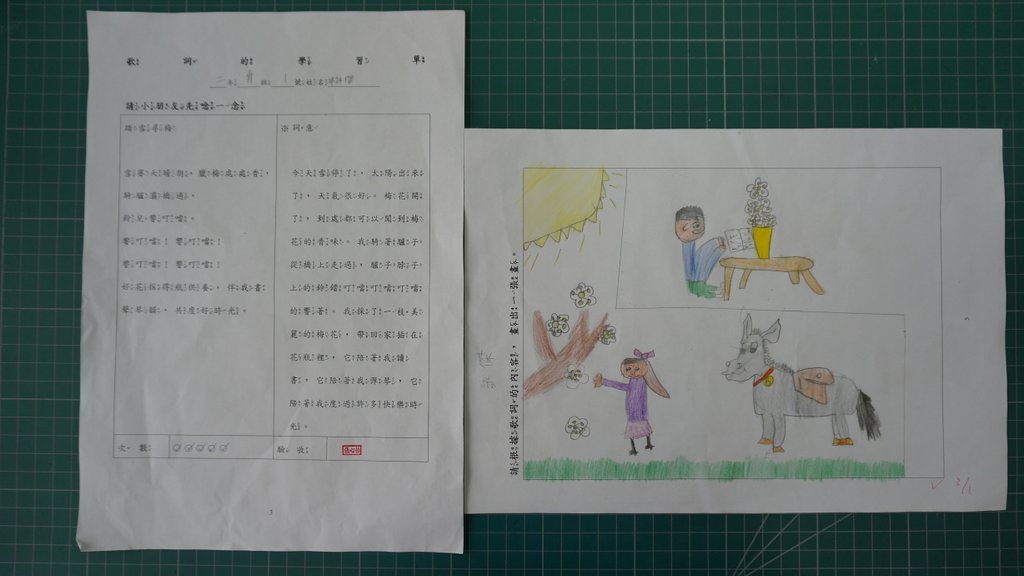 歌詞的學習單
二年 班 1 號姓名
請小朋友先唸一念
踏雪尋梅
雪霽天晴朗，臘梅處處香，
騎驢灞橋過，
鈴兒響叮噹。
響叮噹！響叮噹！
響叮噹！響叮噹！
好花採得瓶供養，伴我書
聲琴韻，共度好時光。
※詞意
今天雪停了，太陽出來
了，天氣很好。梅花開
了，到處都可以聞到梅
花的香味。我騎著驢子，
從橋上走過，驢子脖子
上的鈴鐺叮噹叮噹叮噹
的響著。我採了一枝美
麗的梅花，帶回家插在
花瓶裡，它陪著我讀
書，它陪著我彈琴，它
陪著我度過許多快樂時
光。
次數
驗收
3
請根據歌詞的內容，畫出一張畫。
5